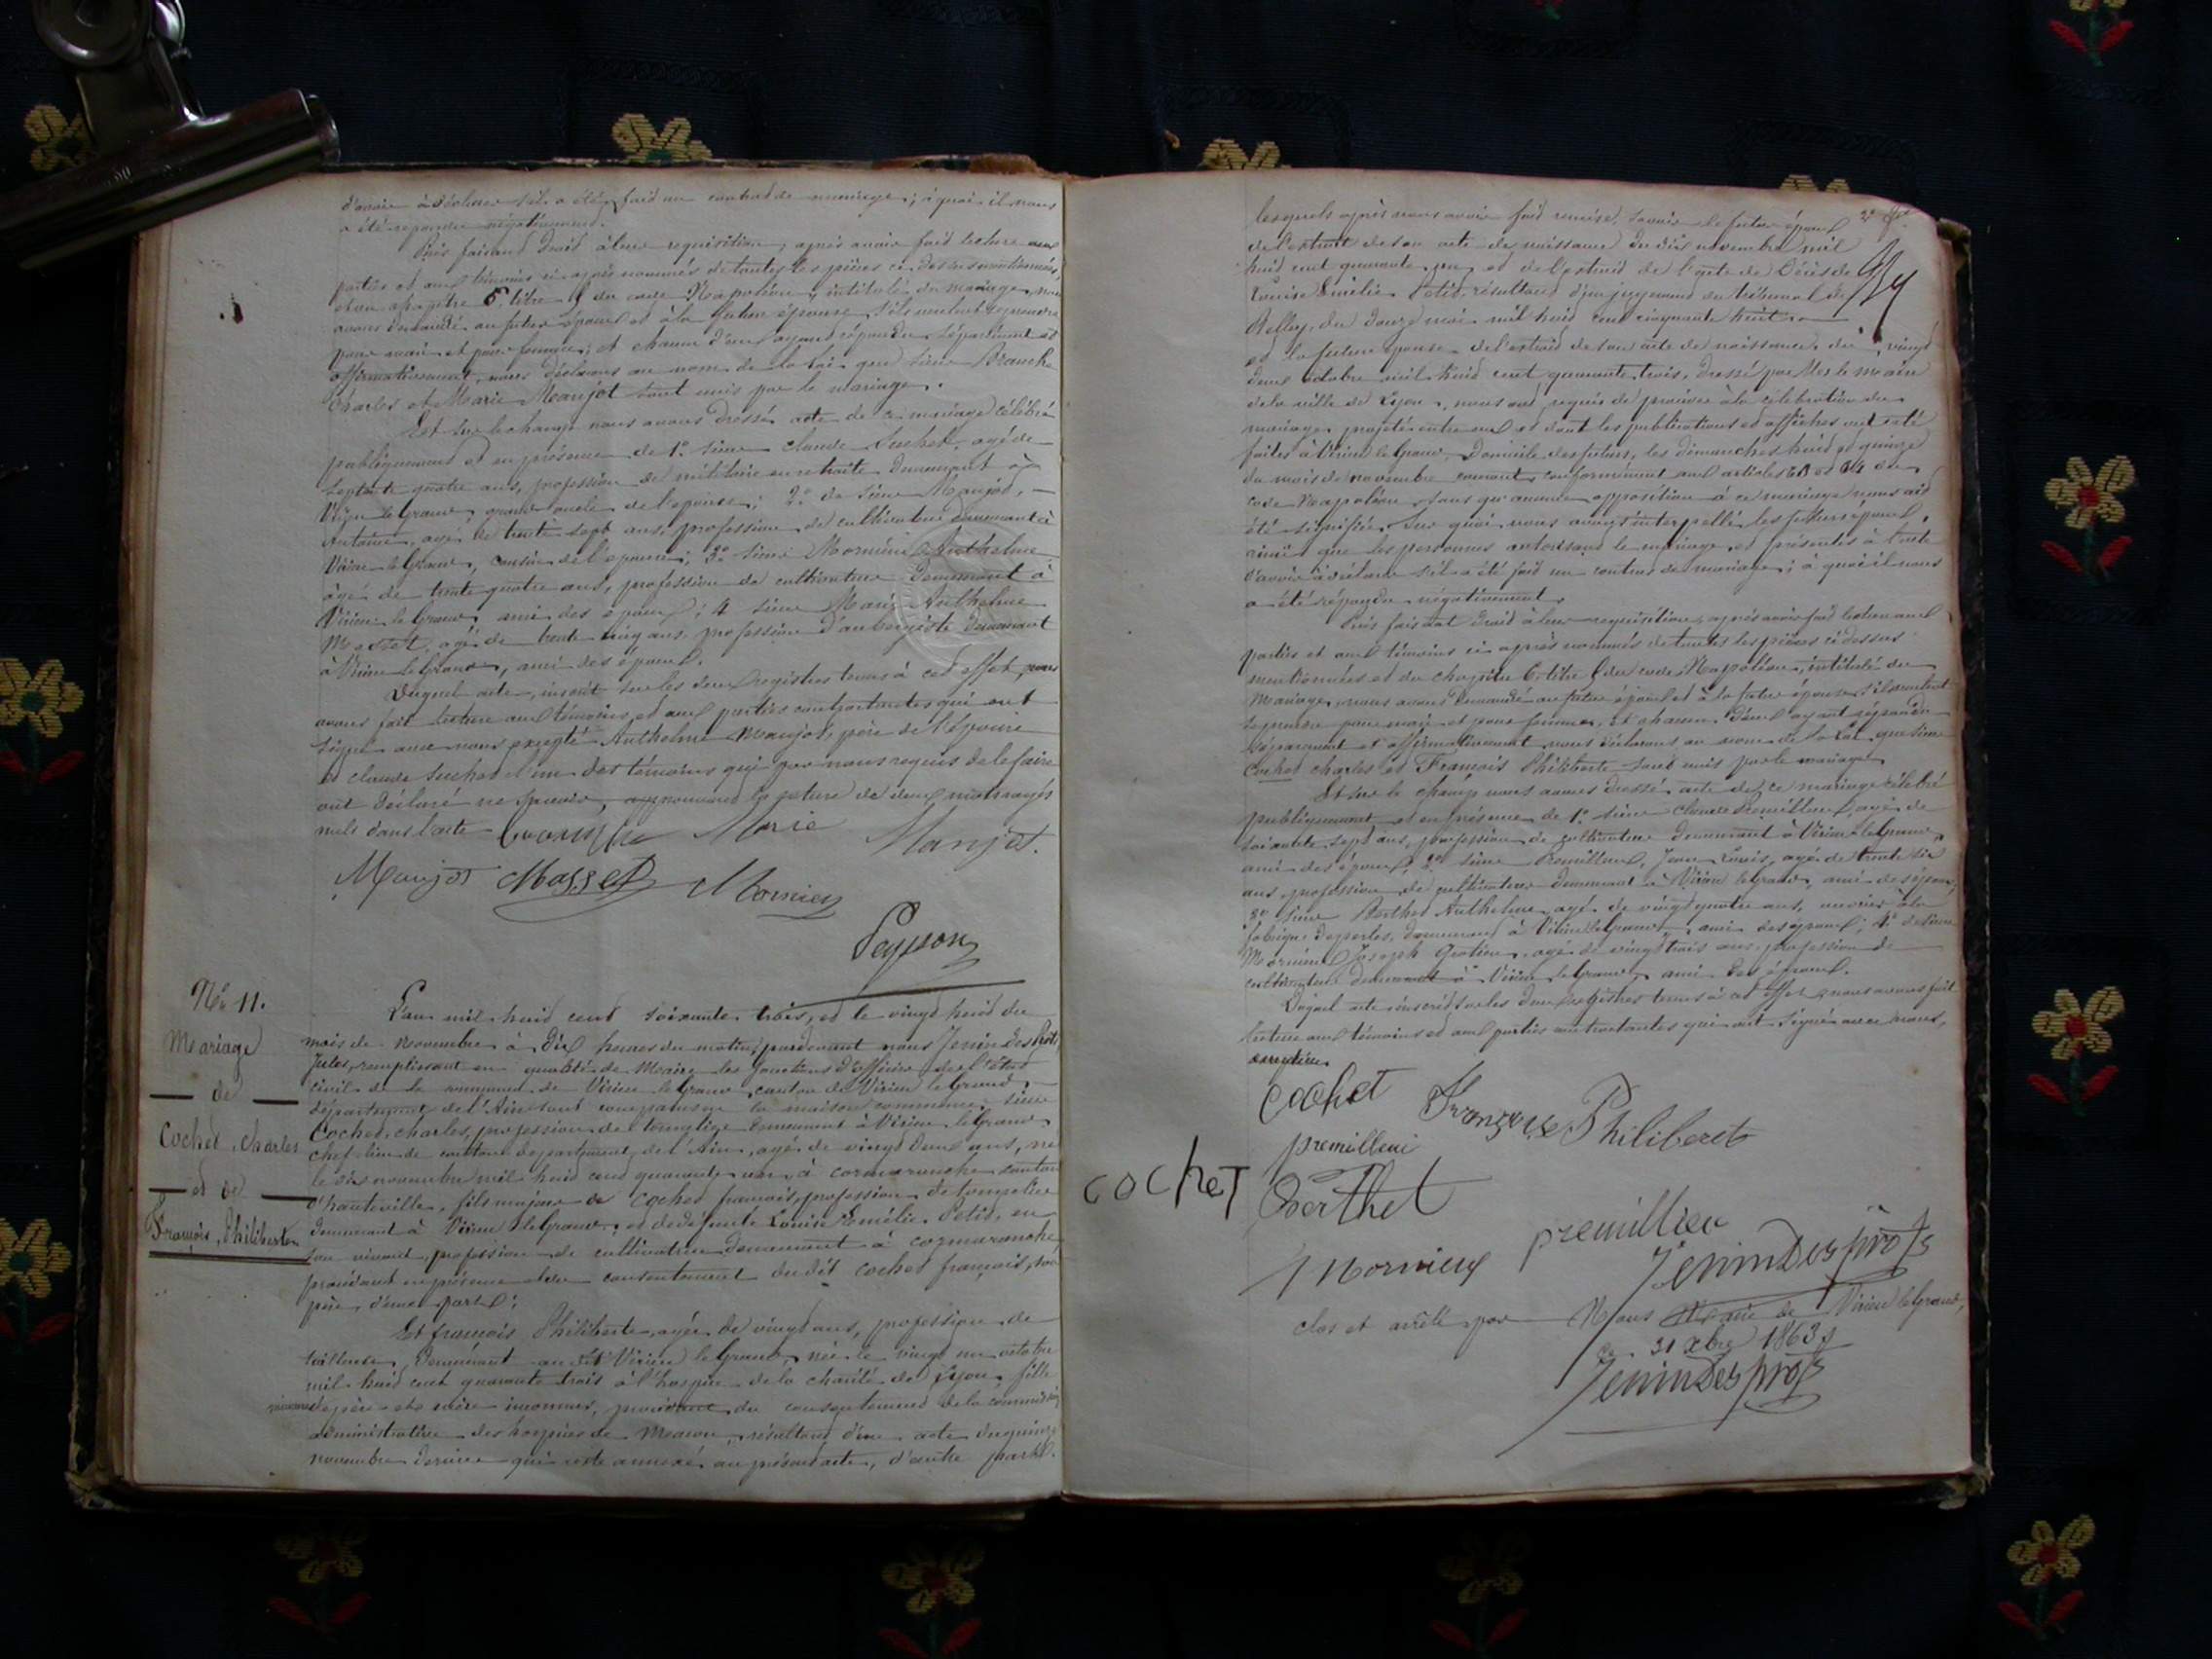 d'avoir à déclarer s'il a été fait un contrat de mariage; à quoi il nous
a été répondu négativement.
Puis faisant droit à leur requisition, après avoir fait lecture aux
parties et aux témoins ci-après nommés de toutes les pièces ci-dessus mentionnées,
et du chapitre 6, titre 5 du code Napoléon, intitulé du mariage, nous
avons demandé au futur époux et à la future épouse s'ils veulent se prendre
pour mari et pour femme; et chacun d'eux ayant répondu séparément et
affirmativement, nous déclarons au nom de la loi que sieur
Charles et Marie Maujot sont unis par le mariage.
Et sur le champ nous avons dressé acte de ce mariage célébré
publiquement et en présence de 1° sieur Claude Suchet, agé de
septante quatre ans, profession de militaire en retraite demeurant à
Virieu le Grand, grand oncle de l'épouse; 2° du sieur Maujot,
Antoine, agé de trente sept ans, profession de cultivateur demeurant à
Virieu le Grand, cousin de l'épouse; 3° sieur Mornieu Anthelme
âgé de trente quatre ans, profession de cultivateur demeurant à
Virieu le Grand ami des époux; 4 sieur Anthelme
Masset, agé de trente cinq ans, profession d'aubergiste demeurant
à Virieu le Grand, ami des époux.
Duquel acte, inscrit sur les deux registres tenus à cet effet, nous
avons fait lecture aux témoins et aux parties contractantes qui ont
signé avec nous excepté Anthelme Maujot, père de l'épouse
et Claude Suchet l'un des témoins qui par nous requis de le faire
ont déclaré ne savoir, approuvant la rature de deux mots rayés
nuls dans l'acte Marie Maujot.
Maujot Masset Mornieu
Peysson
N° 11.
Mariage
de
Cochet, Charles
et de
François, Philiberte
L'an mil huit cent soixante trois, et le vingt huit du
mois de Novembre à dix heures du matin, pardevant nous Jenin Desprôts
Jules, remplissant en qualité de Maire les fonctions d'officier de l'état
civil de la commune de Virieu le Grand canton de Virieu le Grand,
département de l'Ain sont comparus en la maison commune, sieur
Cochet, Charles, profession de demeurant à Virieu le Grand
chef lieu de canton département de l'Ain, agé de vingt deux ans, né
le dix novembre mil huit cent quarante un, à Cormaranche canton
d'hauteville, fils majeur de Cochet françois, profession de
demeurant à Virieu le Grand, et de défunte Louise Emélie Petit, en
son vivant, profession de cultivatrice demeurant à Cormaranche,
procédant en présence et du consentement du dit Cochet françois, son
père, d'une part;
Et françois Philiberte, agée de vingt ans, profession de
tailleuse, demeurant au dit Virieu le Grand, née le vingt un octobre
mil huit cent quarante trois à l'hospice de la charité de Lyon, fille
mineure de père et mère inconnus, procédant du consentement de la commission
administrative des hospices de Macon, résultant d'un acte du quinze
novembre dernier qui reste annexé au présent acte, d'autre part.
lesquels après nous avoir fait remise, savoir le futur époux
de l'extrait de son acte de naissance du dix novembre mil
huit cent quarante un, et de l'extrait de l'acte de décès de
Louise Emélie Petit résultant d'un jugement du tribunal de
Belley, du douze mai mil huit cent cinquante huit.
et la future épouse de l'extrait de son acte de naissance du vingt
deux octobre mil huit cent quarante trois, dressé par Mr le maire
de la ville de Lyon, nous ont requis de procéder à la célébration du
mariage projeté entre eux et dont les publications et affiches ont été
faites à Virieu le Grand, domicile des futurs, les dimanches huit et quinze
du mois de novembre courant conformément aux articles 63 et 64 du
code Napoléon sans qu'aucune opposition à ce mariage nous ait
été signifiée. Sur quoi nous avons interpellé les futurs époux,
ainsi que les personnes autorisant le mariage et présentes à l'acte
d'avoir à déclarer s'il a été fait un contrat de mariage; à quoi il nous
a été répondu négativement.
Puis faisant droit à leur requisition, après avoir fait lecture aux
parties et aux témoins ci après nommés de toutes les pièces ci-dessus
mentionnées et du chapitre 6 titre 5 du code Napoléon, intitulé du
Mariage, nous avons demandé au futur époux et à la future épouse s'ils veulent
se prendre pour mari et pour femme, et chacun d'eux ayant répondu
séparément et affirmativement nous déclarons au nom de la Loi que sieur
Cochet Charles et François Philiberte sont unis par le mariage.
Et sur le champ nous avons dressé acte de ce mariage célébré
publiquement et en présence de 1° sieur Claude Premillieu, agé de
soixante sept ans, profession de cultivateur demeurant à Virieu le Grand,
ami des époux; 2° sieur Premillieu, Jean Louis, agé de trente six
ans, profession de cultivateur demeurant à Virieu le Grand, ami des époux;
3° sieur Berthet Anthelme, agé de vingt quatre ans, ouvrier à la
fabrique de perles, demeurant à Virieu le Grand, ami des époux; 4° de sieur
Mornieu Joseph Gratien, agé de vingt trois ans, profession de
cultivateur demeurant à Virieu le Grand, ami des époux.
Duquel acte inscrit sur les deux registres tenus à cet effet, nous avons fait
lecture aux témoins et aux parties contractantes qui ont signé avec nous,
Cochet Françoise Philiberte
premillieu
COCHET Berthet
premillieu
Mornieu Jenin Desprôts
clos et arrêté par Nous Maire de Virieu le Grand,
ce 31 xbre 1863
Jenin Desprôts